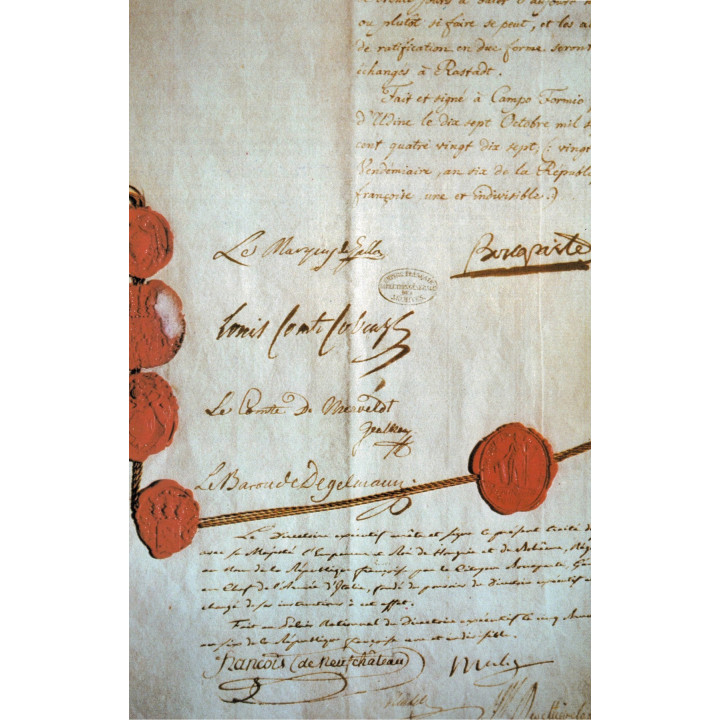 ou plutôt si faire se peut, et les a
de ratification en due forme seront
échangés à Rastadt.
Fait et signé à Campo Formio
d'Udine le dix sept Octobre mil s
cent quatre vingt dix sept, (: vingt
Vendémiaire, an six de la Républ
françoise une et indivisible.)
Le Marquis de Gallo
Bonaparte
Louis Comte Cobenzl
Le Comte De Merveldt
Le Baron de Degelmann
Le Directoire exécutif arrête et signe le présent traité de
avec sa Majesté l'Empereur et Roi de Hongrie et de Bohême, Nég
au nom de la République française par le Citoyen Bonaparte, Gé
en Chef de l'Armée d'Italie, fondé de pouvoirs du Directoire exécutif
chargé de ses instructions à cet effet.
Fait au Palais National du Directoire exécutif le cinq
an six de la République française une et indivisible.
François (de Neufchâteau)
Merlin